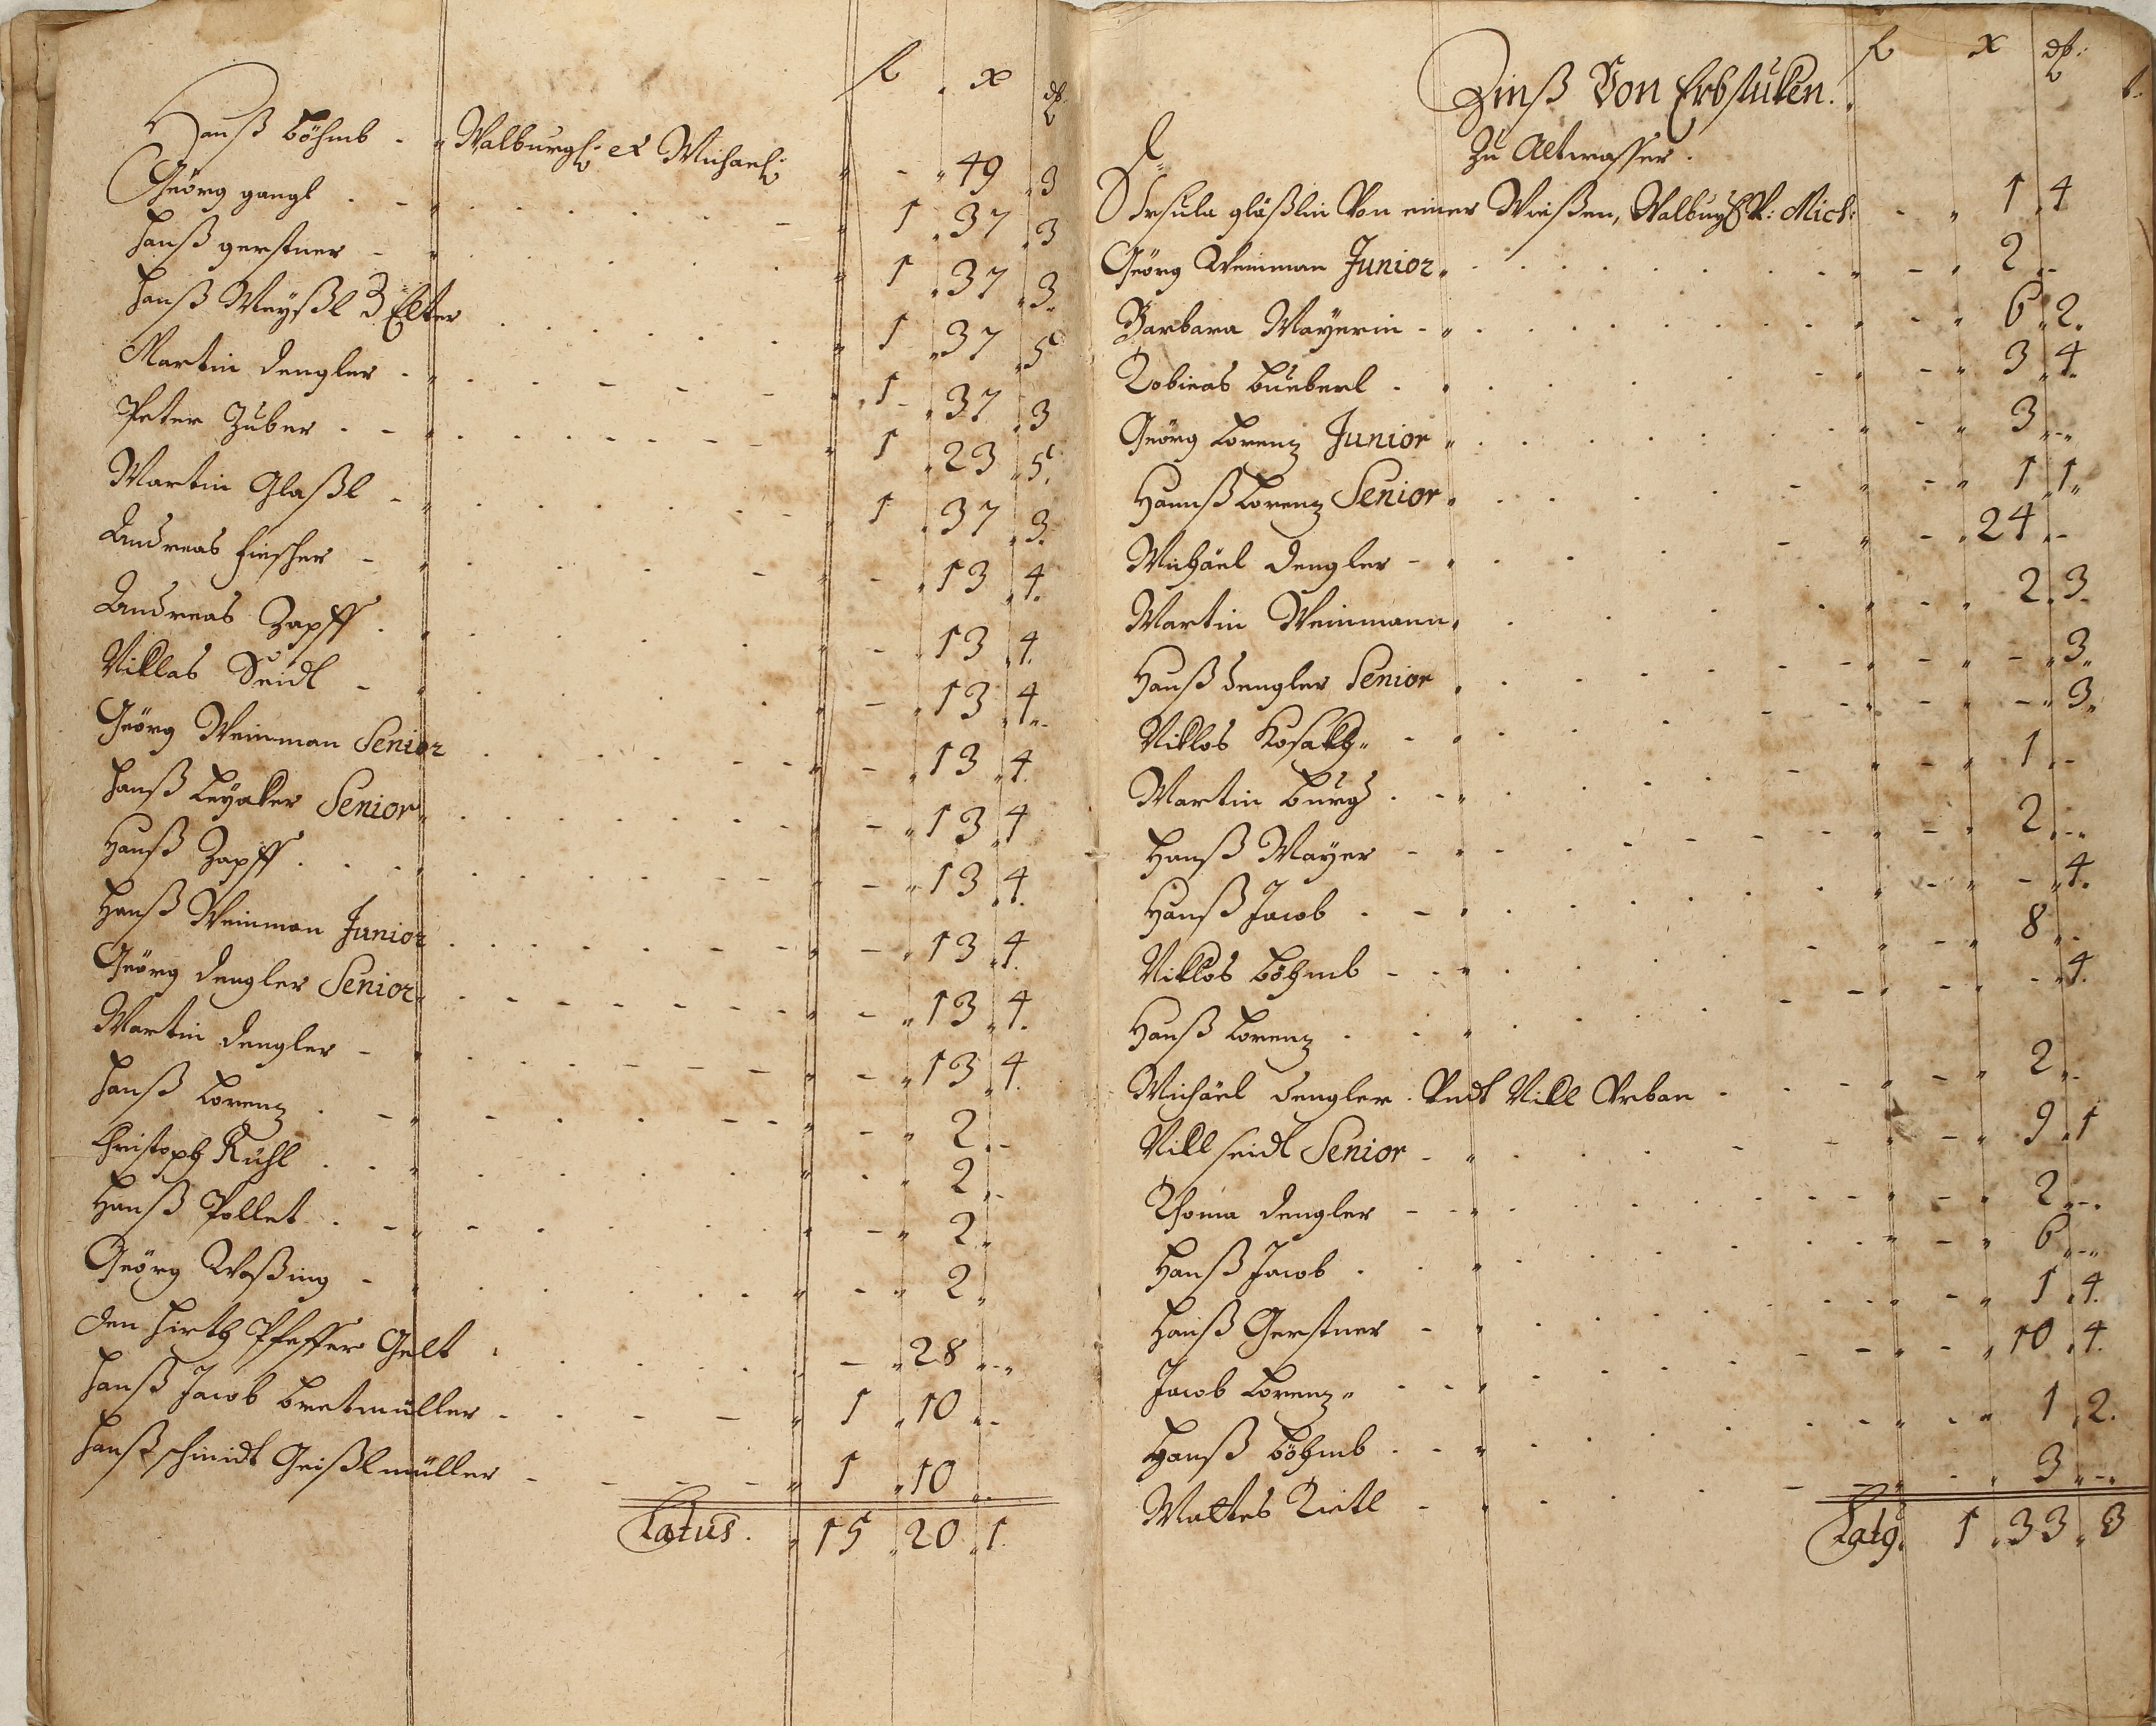 fl x dl
Hanß Böhmb Walburgi et Michaeli - 49 3
Geörg gangl 1 37 3
Hanß gerstner 1 37 3
Hanß Meyßl d. Elter 1 37 5
Martin Dengler 1 37 3
Peter Zuber 1 23 5
Martin Glaßl 1 37 3
Andreas Fischer - 13 4
Andreas Zapff - 13 4
Niklas Seidl - 13 4
Geörg Weinman Senior - 13 4
Hanß Leyaker Senior - 13 4
Hanß Zapff - 13 4
Hanß Weinman Junior - 13 4
Geörg Dengler Senior - 13 4
Martin Dengler - 13 4
Hanß Lorenz - 2 -
Christoph Kühl - 2 -
Hanß Pollet - 2
Geörg Woßing - 2
Den Hirth Pfeffer Gelt - 28 -
Hanß Jacob Bretmüller 1 10 -
Hanß Schmidt Geißlmüller 1 10
Latus. 15 20 1
fl x dl:
Zinß Von Erbstuken.
Zu Altwasser.
Ursula gläßlin Von einer Wießen, Walburg V: Mich: 1 4
Geörg Weinman Junior - 2 -
Barbara Mayerin - 6 2
Tobieas Büeberl - 3 4
Geörg Lorenz Junior - 3 -
Hannß Lorenz Senior - 1 1
Michäel Dengler - 24 -
Martin Weinmann - 2 3
Hanß Dengler Senior - - 3
Niklos - - 3
Martin Burgs - 1 -
Hanß Mayer - 2 -
Hanß Jacob - - 4
Niklos Böhmb - 8 -
Hanß Lorenz - - 4
Michäel Dengler Vndt Nikl Vrban - 2 -
Nikl Seidl Senior - 9 1
Thoma Dengler - 2 -
Hanß Jacob - 6 -
Hanß Gerstner - 1 4
Jacob Lorenz - 10 4
Hanß Böhmb - 1 2
Mattes - 3 -
Latg. 1 33 3